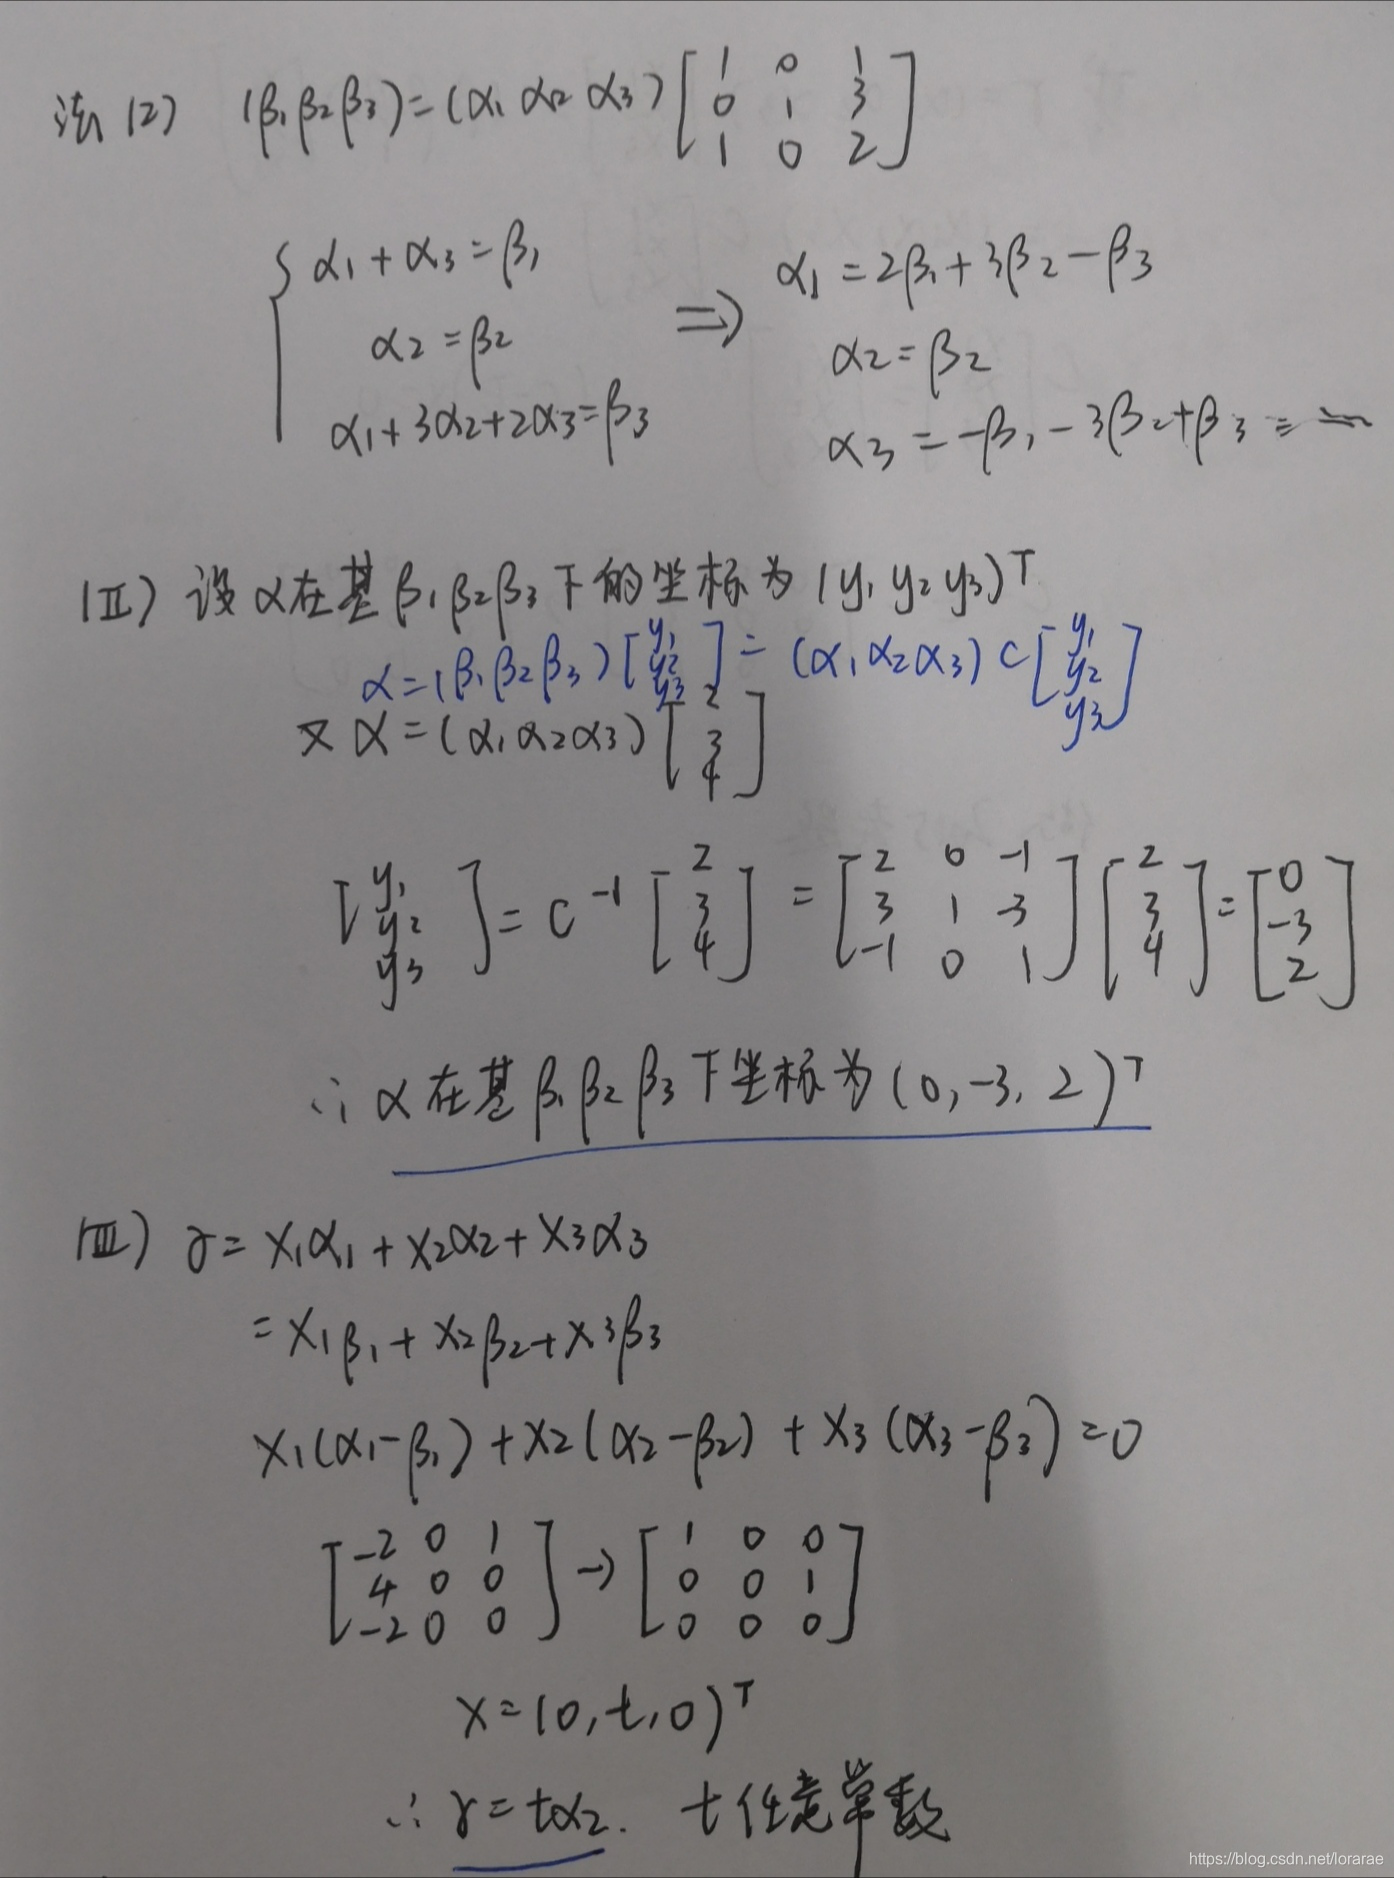 法(2) (β₁β₂β₃)=(α₁ α₂ α₃)[1 0 1; 0 1 3; 1 0 2]
{α₁+α₃=β₁
α₂=β₂
α₁+3α₂+2α₃=β₃
⇒ α₁=2β₁+3β₂-β₃
α₂=β₂
α₃=-β₁-3β₂+β₃
(Ⅱ) 设α在基β₁β₂β₃下的坐标为(y₁ y₂ y₃)ᵀ
α=(β₁β₂β₃)[y₁; y₂; y₃]=(α₁α₂α₃)C[y₁; y₂; y₃]
又α=(α₁α₂α₃)[2; 3; 4]
[y₁; y₂; y₃]=C⁻¹[2; 3; 4]=[2 0 -1; 3 1 -3; -1 0 1][2; 3; 4]=[0; -3; 2]
∴α在基β₁β₂β₃下坐标为(0,-3,2)ᵀ
(Ⅲ) γ=x₁α₁+x₂α₂+x₃α₃
=x₁β₁+x₂β₂+x₃β₃
x₁(α₁-β₁)+x₂(α₂-β₂)+x₃(α₃-β₃)=0
[-2 0 1; 4 0 0; -2 0 0]→[1 0 0; 0 0 1; 0 0 0]
x=(0,t,0)ᵀ
∴γ=tα₂. t任意常数
https://blog.csdn.net/lorarae